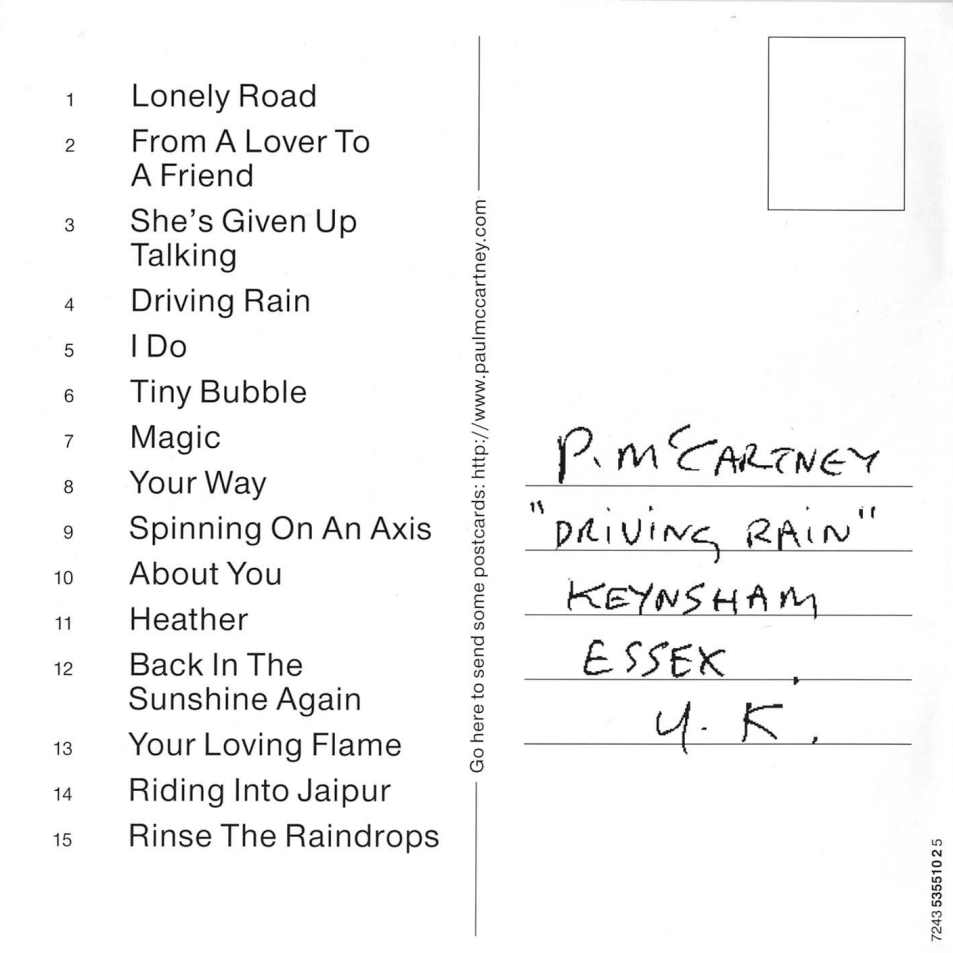 1 Lonely Road
2 From A Lover To
A Friend
3 She's Given Up
Talking
4 Driving Rain
5 I Do
6 Tiny Bubble
7 Magic
8 Your Way
9 Spinning On An Axis
10 About You
11 Heather
12 Back In The
Sunshine Again
13 Your Loving Flame
14 Riding Into Jaipur
15 Rinse The Raindrops
Go here to send some postcards: http://www.paulmccartney.com
P. McCARTNEY
"DRIVING RAIN"
KEYNSHAM
ESSEX,
U.K.
7243 5355102 5